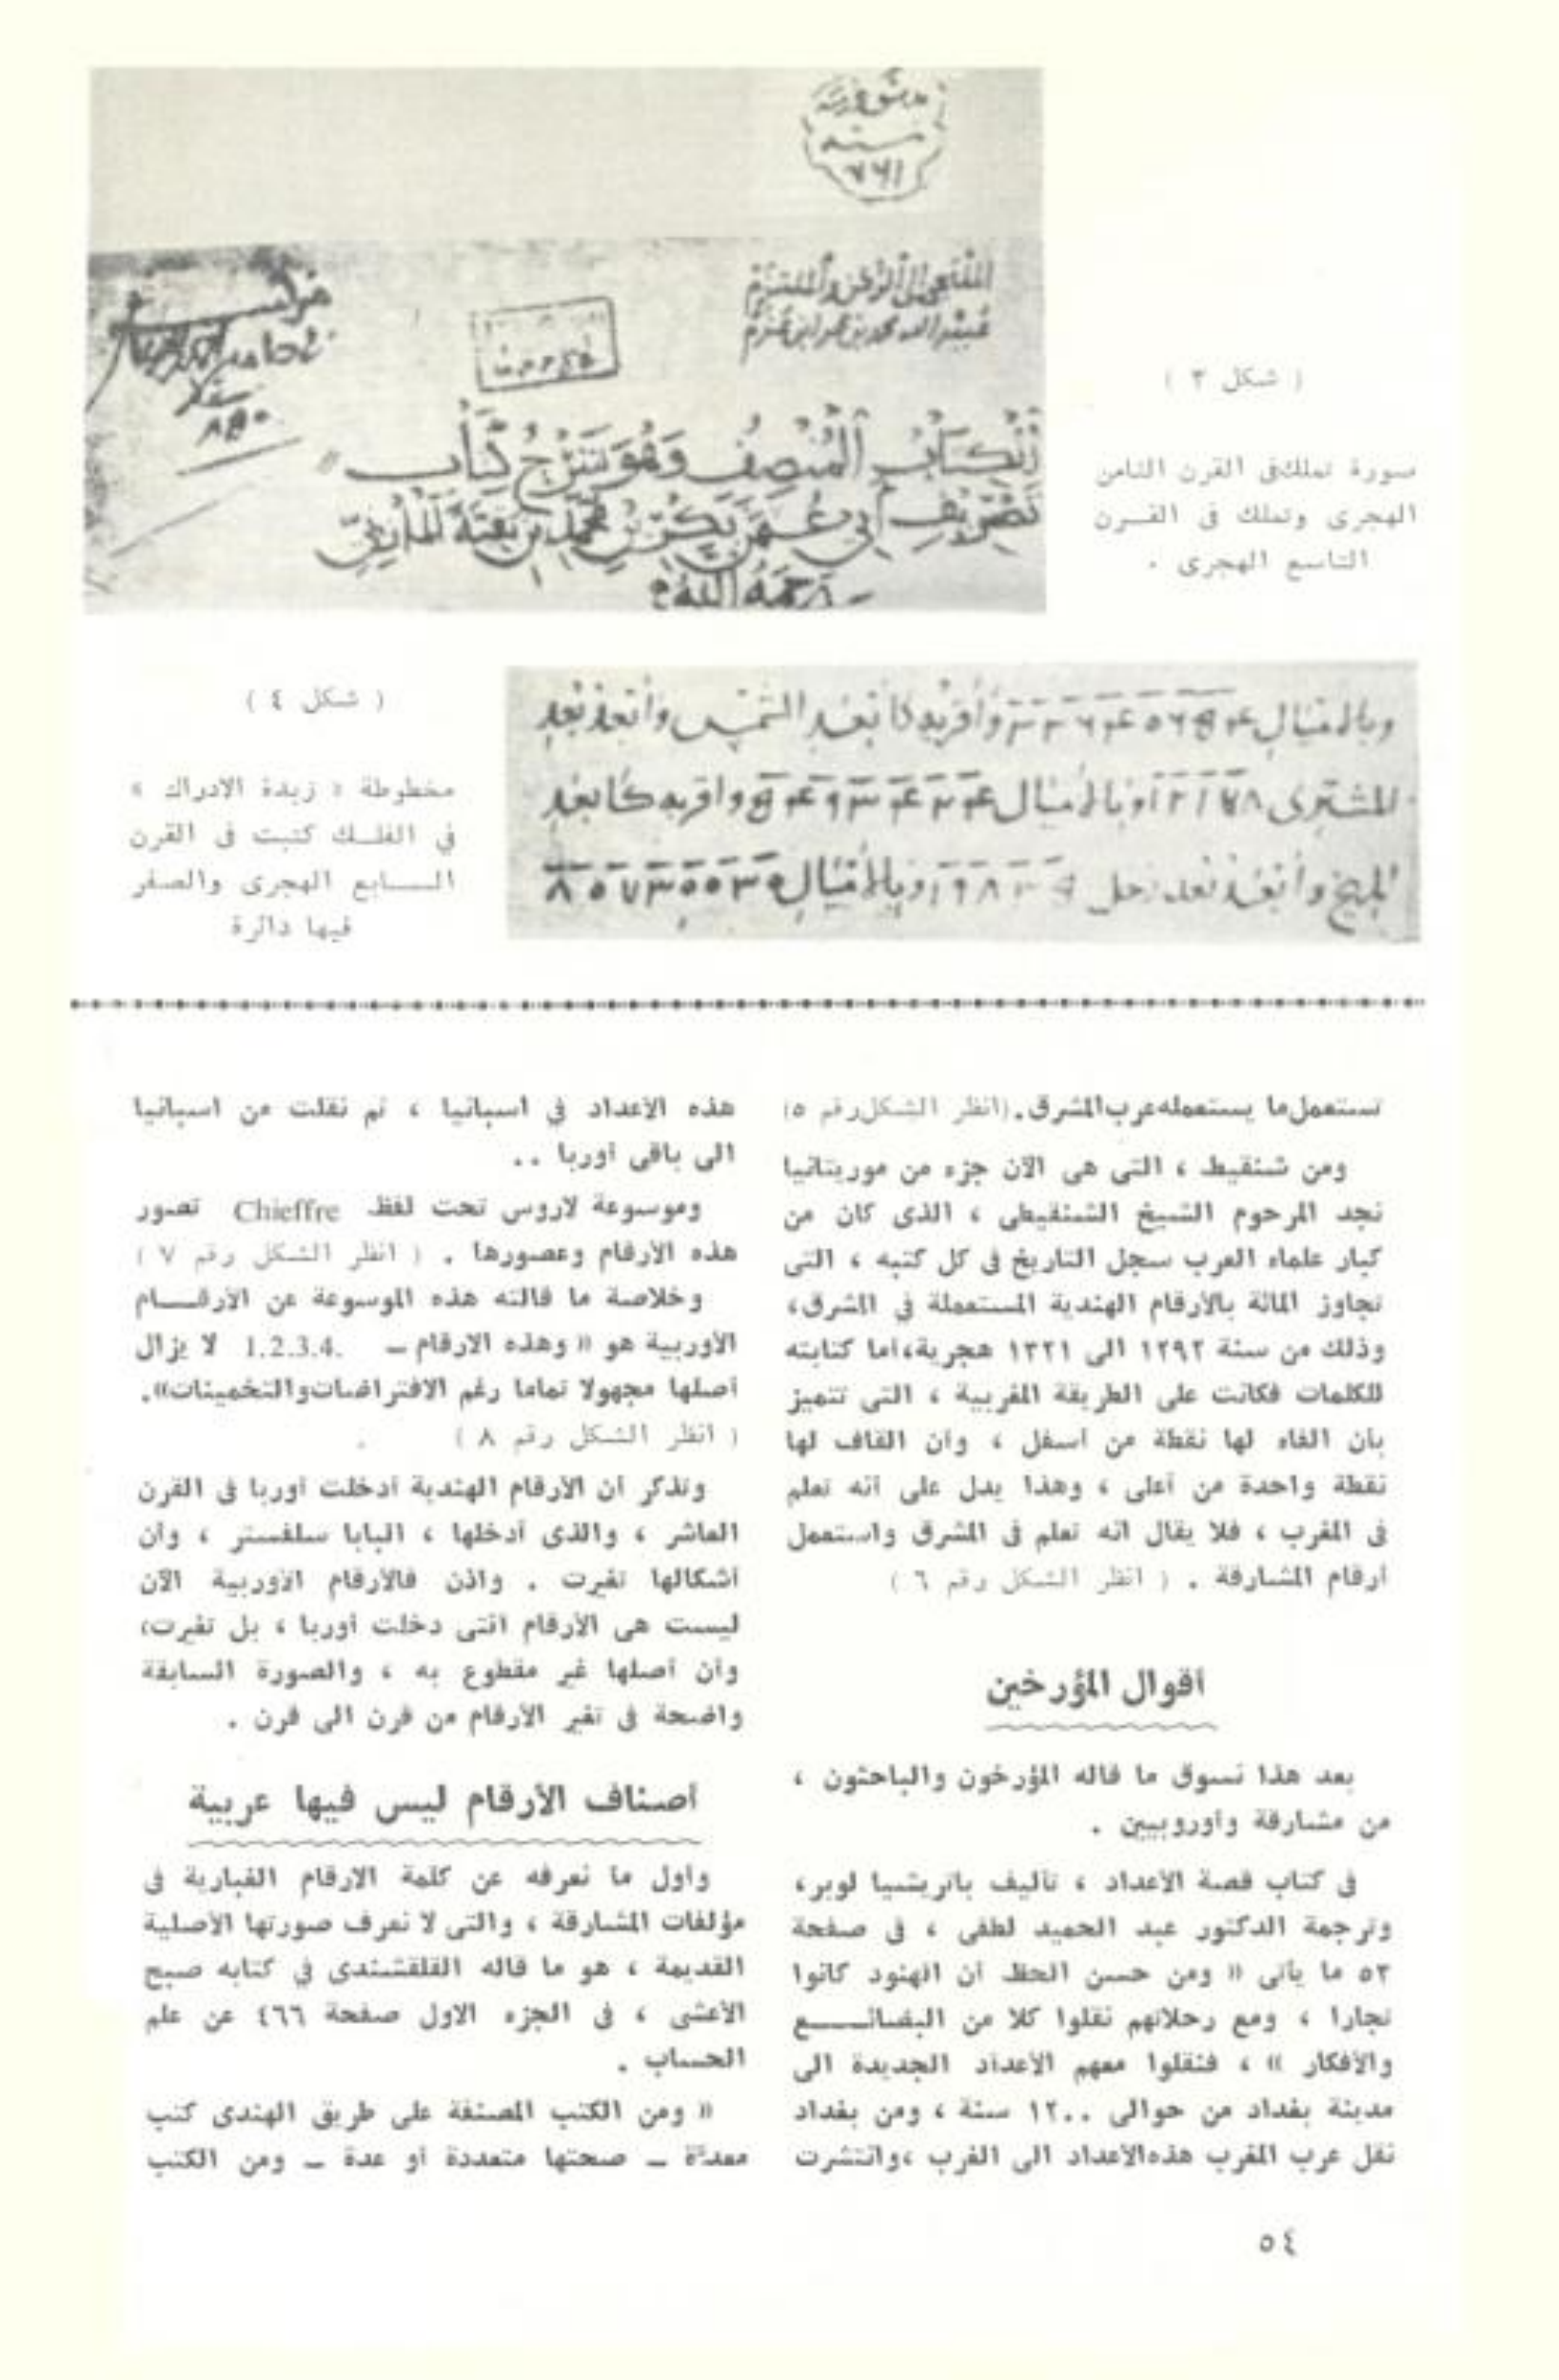 سنة
٧٦١
( شكل ٣ )
صورة تملك فى القرن الثامن
الهجرى وتملك فى القرن
التاسع الهجرى .
كتاب المنصف وهو شرح كتاب
تصريف أبي عثمن بكر بن محمد بن بقية المازني
رحمه الله
( شكل ٤ )
مخطوطة « زبدة الادراك »
في الفلك كتبت فى القرن
السابع الهجرى والصفر
فيها دائرة
تستعمل ما يستعمله عرب المشرق. (انظر الشكل رقم ٥)
ومن شنقيط ، التى هى الآن جزء من موريتانيا
نجد المرحوم الشيخ الشنقيطى ، الذى كان من
كبار علماء العرب سجل التاريخ فى كل كتبه ، التى
تجاوز المائة بالأرقام الهندية المستعملة في المشرق،
وذلك من سنة ١٢٩٢ الى ١٣٢١ هجرية، أما كتابته
للكلمات فكانت على الطريقة المغربية ، التى تتميز
بأن الفاء لها نقطة من أسفل ، وأن القاف لها
نقطة واحدة من أعلى ، وهذا يدل على أنه تعلم
فى المغرب ، فلا يقال انه تعلم فى المشرق واستعمل
أرقام المشارقة . ( انظر الشكل رقم ٦ )
أقوال المؤرخين
بعد هذا نسوق ما قاله المؤرخون والباحثون ،
من مشارقة وأوروبيين .
فى كتاب قصة الأعداد ، تأليف باتريشيا لوبر،
وترجمة الدكتور عبد الحميد لطفى ، فى صفحة
٥٣ ما يأتى « ومن حسن الحظ أن الهنود كانوا
تجارا ، ومع رحلاتهم نقلوا كلا من البضائع
والأفكار » ، فنقلوا معهم الأعداد الجديدة الى
مدينة بغداد من حوالى ١٢٠٠ سنة ، ومن بغداد
نقل عرب المغرب هذه الأعداد الى الغرب ، وانتشرت
هذه الأعداد في أسبانيا ، ثم نقلت من أسبانيا
الى باقى أوربا ..
وموسوعة لاروس تحت لفظ Chieffre تصور
هذه الأرقام وعصورها . ( انظر الشكل رقم ٧ )
وخلاصة ما قالته هذه الموسوعة عن الأرقام
الأوربية هو « وهذه الارقام – 1.2.3.4. لا يزال
أصلها مجهولا تماما رغم الافتراضات والتخمينات».
( انظر الشكل رقم ٨ )
وتذكر أن الأرقام الهندية أدخلت أوربا فى القرن
العاشر ، والذى أدخلها ، البابا سلفستر ، وأن
أشكالها تغيرت . واذن فالأرقام الأوربية الآن
ليست هى الأرقام التى دخلت أوربا ، بل تغيرت،
وأن أصلها غير مقطوع به ، والصورة السابقة
واضحة فى تغير الأرقام من قرن الى قرن .
أصناف الأرقام ليس فيها عربية
وأول ما نعرفه عن كلمة الارقام الغبارية فى
مؤلفات المشارقة ، والتى لا نعرف صورتها الأصلية
القديمة ، هو ما قاله القلقشندى في كتابه صبح
الأعشى ، فى الجزء الاول صفحة ٤٦٦ عن علم
الحساب .
« ومن الكتب المصنفة على طريق الهندى كتب
معدة – صحتها متعددة أو عدة – ومن الكتب
٥٤